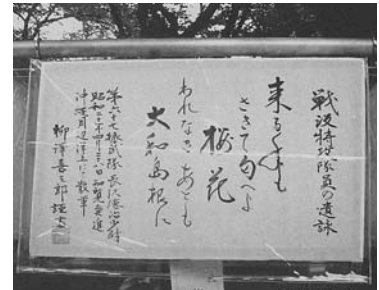 戦没特攻隊員の遺詠
来る年も
さきて匂へよ
桜花
われなきあとも
大和島根に
第六十七振武隊 長沢徳治少尉
昭和二十年四月二八日知覧発進
沖縄周辺洋上にて散華
柳澤喜三郎謹書